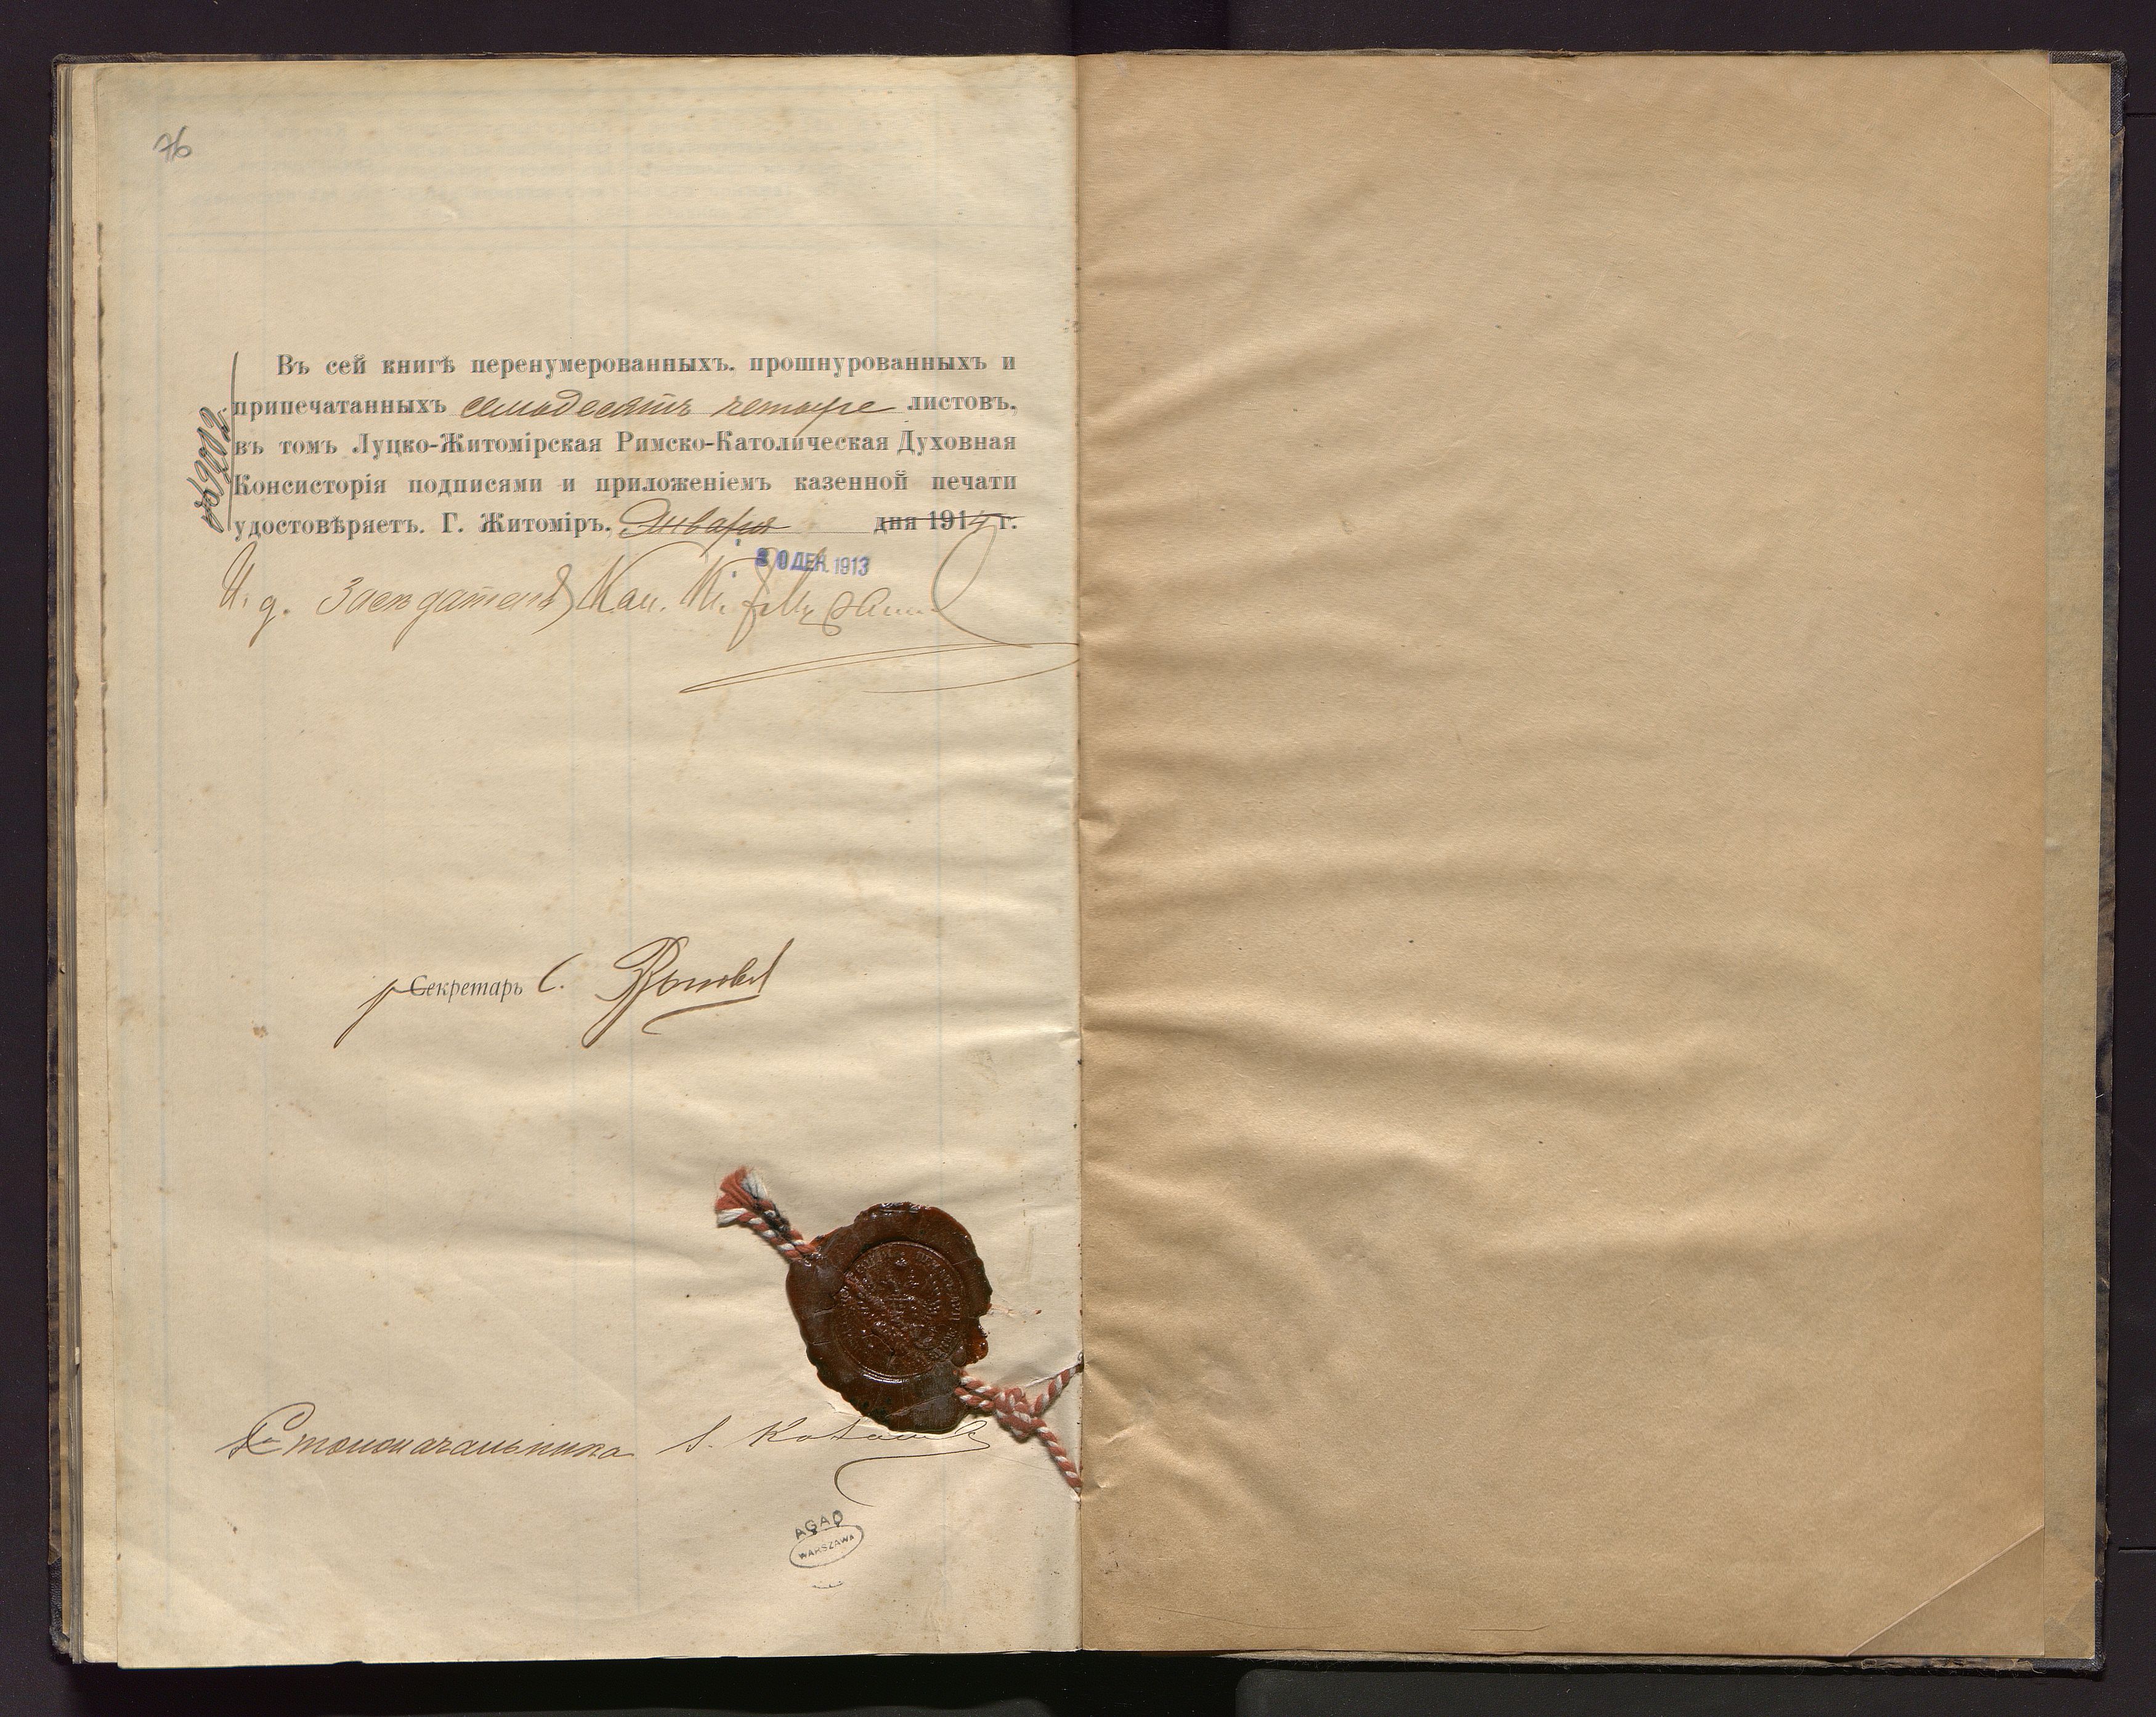 76
Въ сей книгѣ перенумерованныхъ. прошнурованныхъ и
припечатанныхъ семьдесятъ четыре листовъ.
въ томъ Луцко-Житомірская Римско-Католическая Духовная
Консисторія подписями и приложеніемъ казенной печати
удостовѣряетъ. Г. Житоміръ, Января дня 1914 г.
30 ДЕК. 1913
И. д. Засѣдателя Кан.
Секретарь С.
Столоначальника
AGAD
WARSZAWA